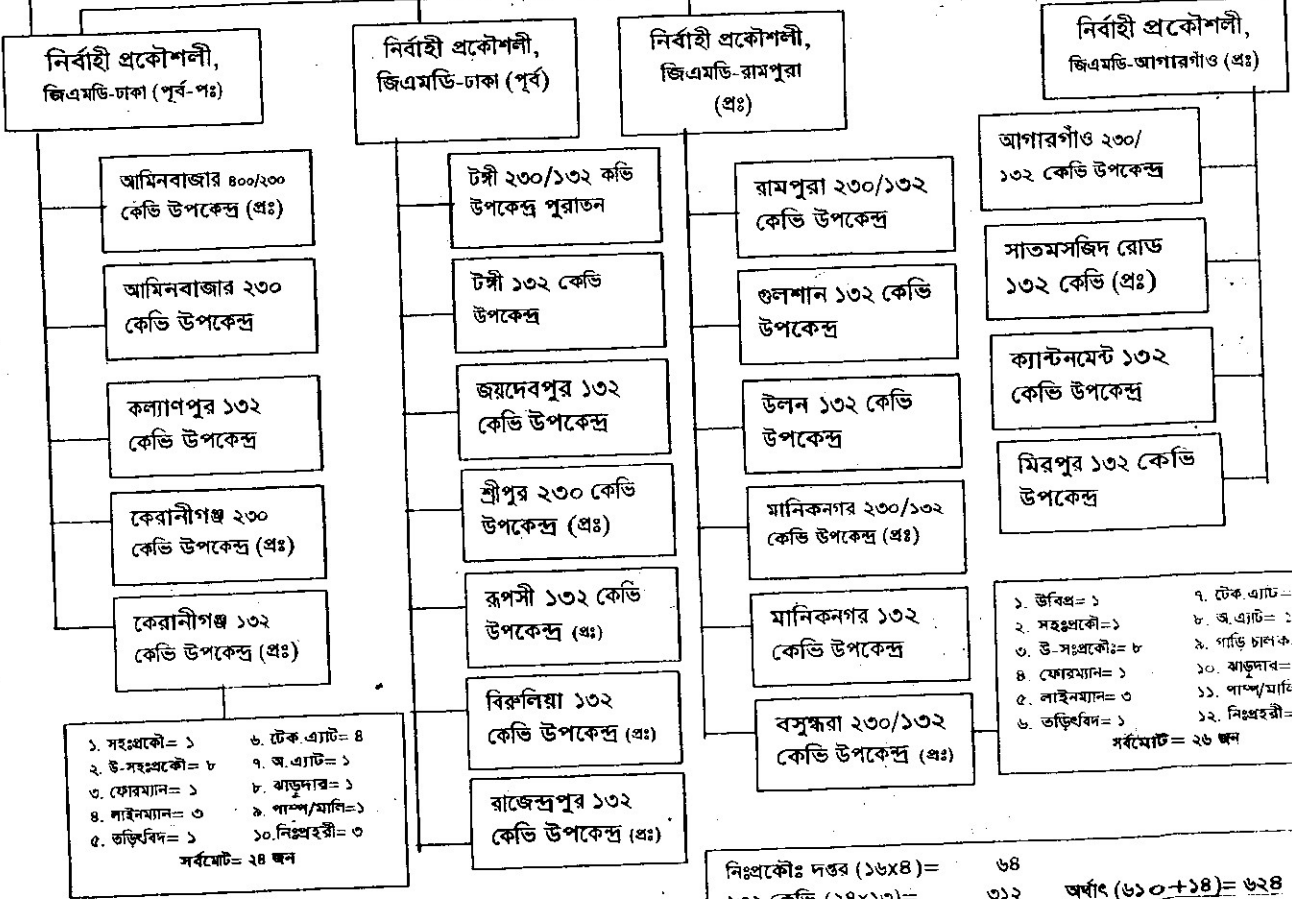 নির্বাহী প্রকৌশলী,
জিএমডি-ঢাকা (পূর্ব-পঃ)
আমিনবাজার ৪০০/২৩০
কেভি উপকেন্দ্র (প্রঃ)
আমিনবাজার ২৩০
কেভি উপকেন্দ্র
কল্যাণপুর ১৩২
কেভি উপকেন্দ্র
কেরানীগঞ্জ ২৩০
কেভি উপকেন্দ্র (প্রঃ)
কেরানীগঞ্জ ১৩২
কেভি উপকেন্দ্র (প্রঃ)
১. সহঃপ্রকৌ= ১
২. উ-সহঃপ্রকৌ= ৮
৩. ফোরম্যান= ১
৪. লাইনম্যান= ৩
৫. তড়িৎবিদ= ১
৬. টেক.এ্যাট= ৪
৭. অ.এ্যাট= ১
৮. ঝাড়ুদার= ১
৯. পাম্প/মালি=১
১০.নিঃপ্রহরী= ৩
সর্বমোট= ২৪ জন
নির্বাহী প্রকৌশলী,
জিএমডি-ঢাকা (পূর্ব)
টঙ্গী ২৩০/১৩২ কভি
উপকেন্দ্র পুরাতন
টঙ্গী ১৩২ কেভি
উপকেন্দ্র
জয়দেবপুর ১৩২
কেভি উপকেন্দ্র
শ্রীপুর ২৩০ কেভি
উপকেন্দ্র (প্রঃ)
রূপসী ১৩২ কেভি
উপকেন্দ্র (প্রঃ)
বিরুলিয়া ১৩২
কেভি উপকেন্দ্র (প্রঃ)
রাজেন্দ্রপুর ১৩২
কেভি উপকেন্দ্র (প্রঃ)
নির্বাহী প্রকৌশলী,
জিএমডি-রামপুরা
(প্রঃ)
রামপুরা ২৩০/১৩২
কেভি উপকেন্দ্র
গুলশান ১৩২ কেভি
উপকেন্দ্র
উলন ১৩২ কেভি
উপকেন্দ্র
মানিকনগর ২৩০/১৩২
কেভি উপকেন্দ্র (প্রঃ)
মানিকনগর ১৩২
কেভি উপকেন্দ্র
বসুন্ধরা ২৩০/১৩২
কেভি উপকেন্দ্র (প্রঃ)
নির্বাহী প্রকৌশলী,
জিএমডি-আগারগাঁও (প্রঃ)
আগারগাঁও ২৩০/
১৩২ কেভি উপকেন্দ্র
সাতমসজিদ রোড
১৩২ কেভি (প্রঃ)
ক্যান্টনমেন্ট ১৩২
কেভি উপকেন্দ্র
মিরপুর ১৩২ কেভি
উপকেন্দ্র
১. উবিপ্র= ১
২. সহঃপ্রকৌ=১
৩. উ-সঃপ্রকৌঃ= ৮
৪. ফোরম্যান= ১
৫. লাইনম্যান= ৩
৬. তড়িৎবিদ= ১
৭. টেক.এ্যাট=
৮. অ.এ্যাট=
৯. গাড়ি চালক
১০. ঝাড়ুদার=
১১. পাম্প/মালি
১২. নিঃপ্রহরী=
সর্বমোট= ২৬ জন
নিঃপ্রকৌঃ দপ্তর (১৬x৪)= ৬৪
৩১২ অর্থাৎ (৬১০+১৪)= ৬২৪